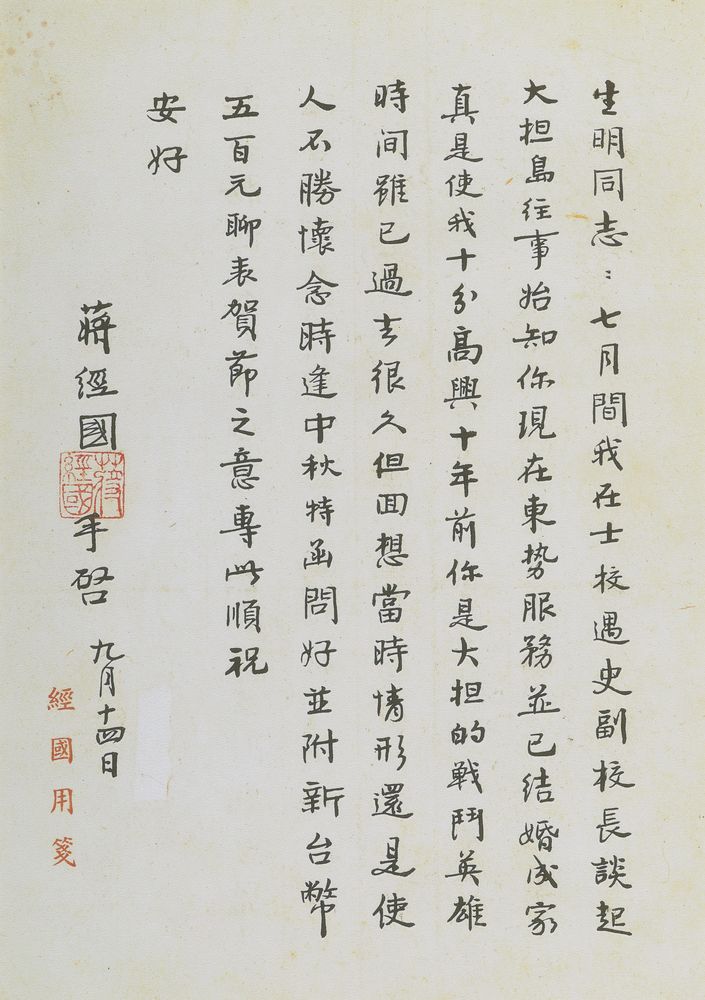 生明同志：七月間我在士校遇史副校長談起
大担島往事始知你現在東势服務並已结婚成家
真是使我十分高興十年前你是大担的戰鬥英雄
時间雖已過去很久但回想當時情形還是使
人不勝懷念時逢中秋特函問好並附新台幣
五百元聊表賀節之意專此順祝
安好
蔣經國手啓 九月十四日
蔣經國
經國用箋